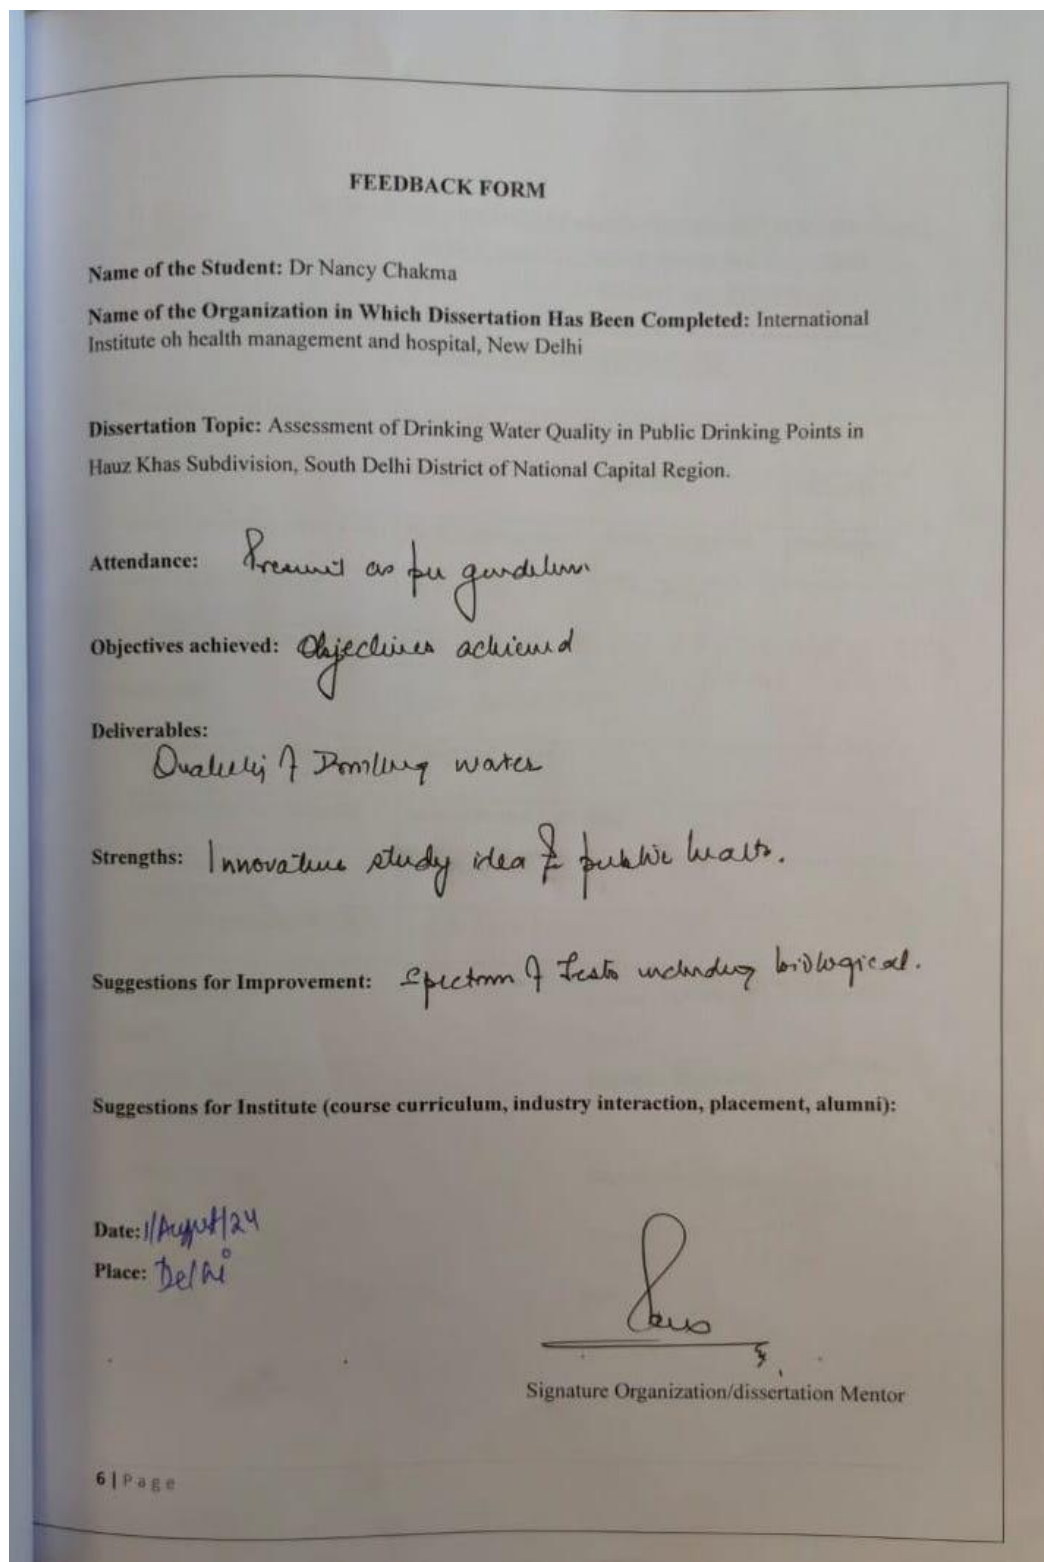 FEEDBACK FORM
Name of the Student: Dr Nancy Chakma
Name of the Organization in Which Dissertation Has Been Completed: International
Institute oh health management and hospital, New Delhi
Dissertation Topic: Assessment of Drinking Water Quality in Public Drinking Points in
Hauz Khas Subdivision, South Delhi District of National Capital Region.
Attendance: Present as per guidelines
Objectives achieved: Objectives achieved
Deliverables:
Quality of Drinking water
Strengths: Innovative study idea of public health.
Suggestions for Improvement: Spectrum of tests including biological.
Suggestions for Institute (course curriculum, industry interaction, placement, alumni):
Date: 1/August/24
Place: Delhi
Signature Organization/dissertation Mentor
6 | Page